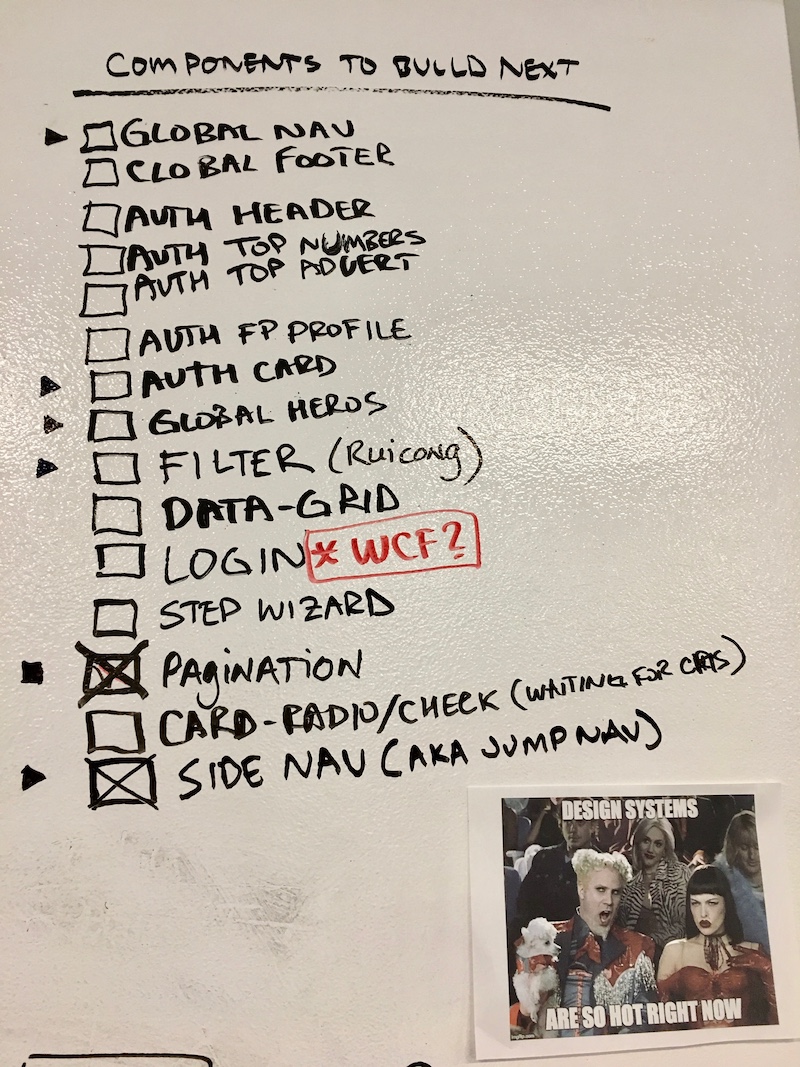 COMPONENTS TO BUILD NEXT
GLOBAL NAV
GLOBAL FOOTER
AUTH HEADER
AUTH TOP NUMBERS
AUTH TOP ADVERT
AUTH FP PROFILE
AUTH CARD
GLOBAL HEROS
FILTER (Ruicong)
DATA-GRID
LOGIN * WCF?
STEP WIZARD
PAgINATION
CARD-RADIO/CHECK (WAITING FOR
SIDE NAV (AKA JUMP NAV)
DESIGN SYSTEMS
ARE SO HOT RIGHT NOW
imgflip.com